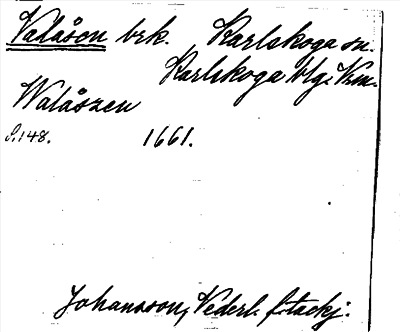 Valåsen brk. Karlskoga sn.
Karlskoga blg. Vrm.
Walåszen
S. 148. 1661.
Johansson, Vederl. f. tackj.